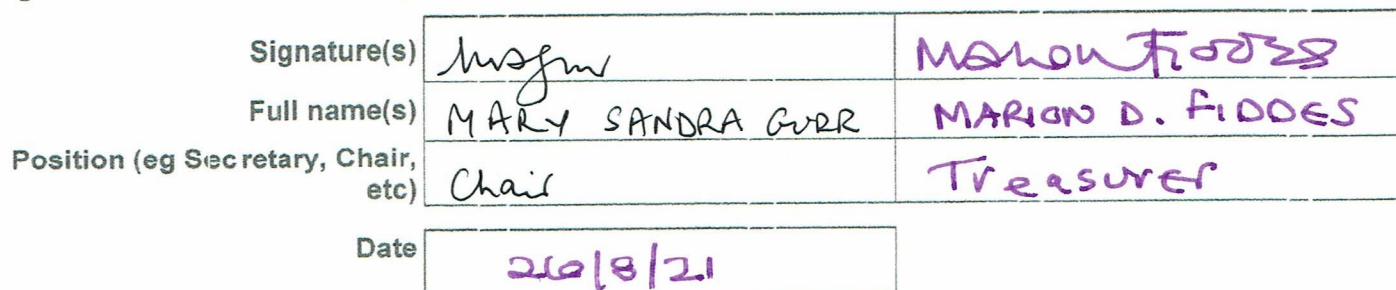 Signature(s) Marion Fiddes
Full name(s) MARY SANDRA GURR MARION D. FIDDES
Position (eg Secretary, Chair,
etc) Chair Treasurer
Date 26/8/21